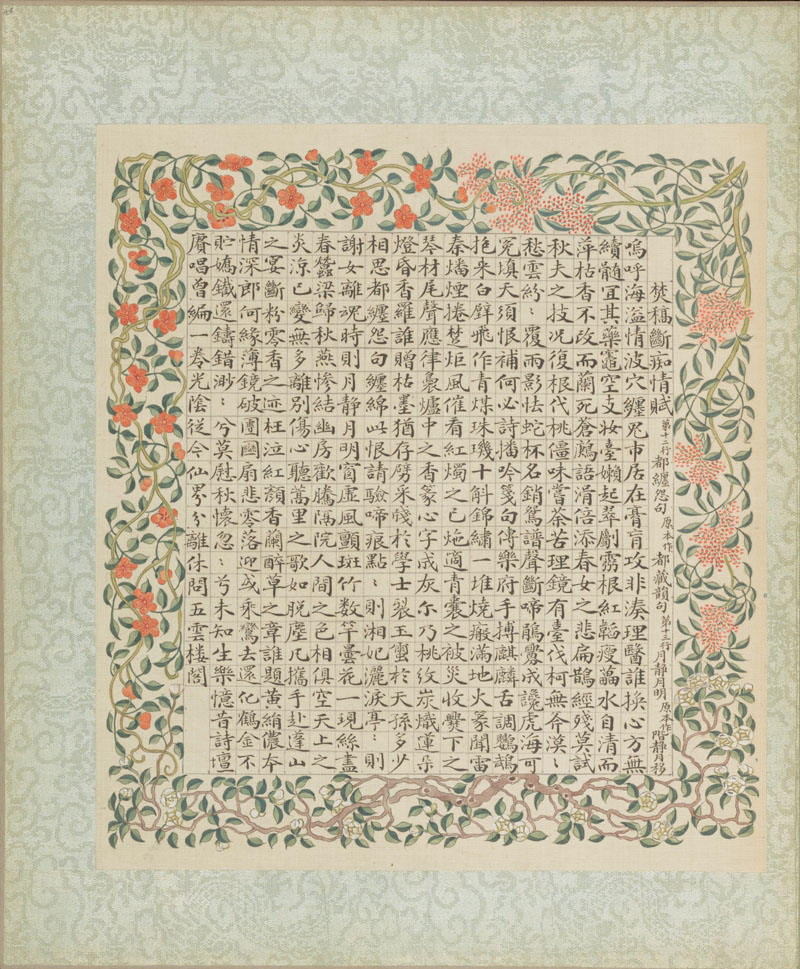 焚稿斷痴情賦 第十二行都纏怨句 原本作 都藏韻句 第十三行月靜月明 原本作 階靜月移
嗚呼海溢情波穴纏咒市居在膏肓攻非湊理醫誰換心方無
續髓宜其藥竈空支妝臺嬾起翠劚霧根紅韜瘦萏水自清而
萍枯香不改而蘭死蒼鷓語滑倍添春女之悲扁鵲經殘莫試
秋夫之技况復根代桃僵味嘗荼苦理鏡有臺伐柯無斧漠〻
愁雲紛〻覆雨影怯蛇杯名銷鴛譜聲斷啼鵑釁成讒虎海可
冤填天須恨補何必詩播吟箋句傳樂府手搏麒麟舌調鸚鵡
抱來白璧飛作青煤珠璣十斛錦繡一堆燒瘢滿地火篆聞雷
秦燔煙捲楚炬風催看紅燭之已灺適青囊之被災收爨下之
琴材尾聲應律裊爐中之香篆心字成灰尔乃桃紋炭熾蓮朵
燈昏香羅誰贈枯墨猶存劈采牋於學士裂玉璽於天孫多少
相思都纏怨句纏綿此恨請驗啼痕點〻則湘妃灑淚亭〻則
謝女離魂時則月靜月明窗虛風顫斑竹數竿曇花一現絲盡
春蠶梁歸秋燕慘結幽房歡騰隔院人間之色相俱空天上之
炎涼已變無多離別傷心聽蒿里之歌如脫塵凡攜手赴蓬山
之宴斷粉零香之迹枉泣紅顏香蘭醉草之章誰題黃絹儂本
情深郎何緣薄鏡破團圞扇悲零落迎或乘鸞去還化鶴金不
貯嬌鐵還鑄錯渺〻兮莫慰秋懷忽〻兮未知生樂憶昔詩壇
賡唱曾編一卷光陰從今仙界分離休問五雲樓閣